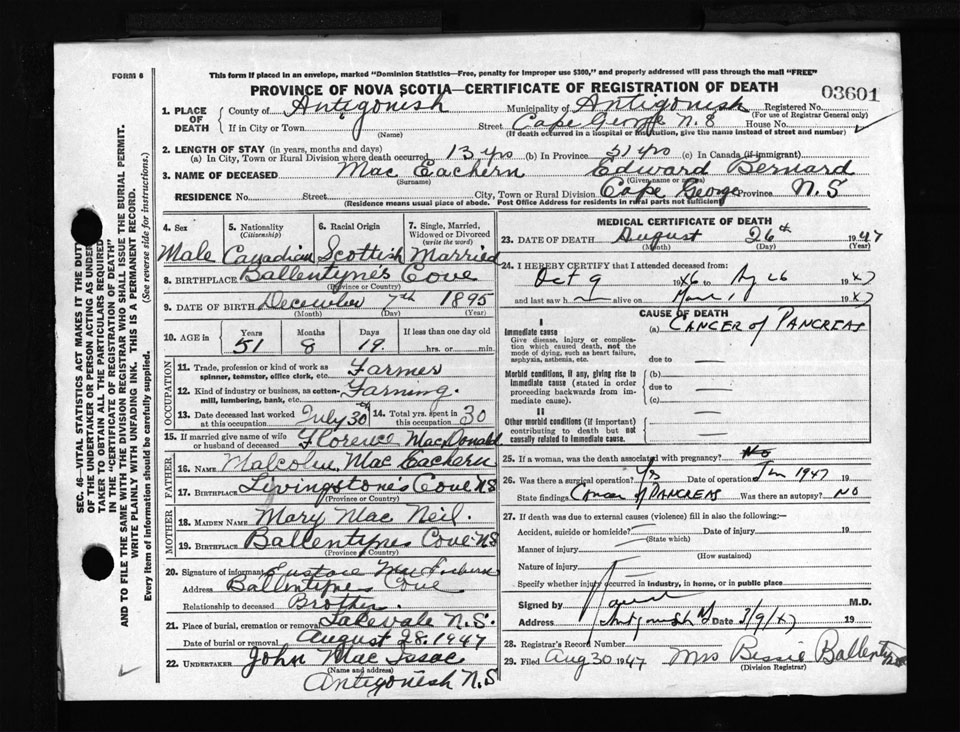 FORM 6
This form if placed in an envelope, marked "Dominion Statistics—Free, penalty for improper use $300," and properly addressed will pass through the mail "FREE"
PROVINCE OF NOVA SCOTIA—CERTIFICATE OF REGISTRATION OF DEATH
03601
1. PLACE OF DEATH County of Antigonish Municipality of Antigonish Registered No.
(For use of Registrar General only)
If in City or Town Street Cape George N.S House No.
(Name) (If death occurred in a hospital or institution, give the name instead of street and number)
2. LENGTH OF STAY (in years, months and days)
(a) In City, Town or Rural Division where death occurred 13 yrs (b) In Province 51 yrs (c) In Canada (if immigrant)
3. NAME OF DECEASED Mac Eachern Edward Bernard
(Surname) (Given name or names)
RESIDENCE No. Street City, Town or Rural Division Cape George Province N.S
(Residence means usual place of abode. Post Office Address for residents in rural parts not sufficient)
4. Sex 5. Nationality (Citizenship) 6. Racial Origin 7. Single, Married, Widowed or Divorced (write the word)
Male Canadian Scottish Married
8. BIRTHPLACE Ballentynes Cove
(Province or Country)
9. DATE OF BIRTH December 7th 1895
(Month) (Day) (Year)
10. AGE in Years Months Days If less than one day old
51 8 19. hrs. or min.
OCCUPATION
11. Trade, profession or kind of work as spinner, teamster, office clerk, etc. Farmer
12. Kind of industry or business, as cotton-mill, lumbering, bank, etc. Farming.
13. Date deceased last worked at this occupation July 30th 14. Total yrs. spent in this occupation 30
15. If married give name of wife or husband of deceased Florence MacDonald
FATHER
16. Name Malcolm Mac Eachern
17. Birthplace Livingstones Cove N.S
(Province or Country)
MOTHER
18. Maiden Name Mary Mac Neil.
19. Birthplace Ballentynes Cove N.S
(Province or Country)
20. Signature of informant Eustace Mac Eachern
Address Ballentynes Cove
Relationship to deceased Brother
21. Place of burial, cremation or removal Lakevale N.S.
Date of burial or removal August 28. 1947
22. UNDERTAKER John Mac Issac
(Name and address)
Antigonish N.S
MEDICAL CERTIFICATE OF DEATH
23. DATE OF DEATH August 26th 1947
(Month) (Day) (Year)
24. I HEREBY CERTIFY that I attended deceased from:
Oct 9 1946 to Aug 26 1947
and last saw h alive on 1947
CAUSE OF DEATH
I
Immediate cause (a) CANCER of PANCREAS
Give disease, injury or complication which caused death, not the mode of dying, such as heart failure, asphyxia, asthenia, etc.
due to —
Morbid conditions, if any, giving rise to immediate cause (stated in order proceeding backwards from immediate cause).
(b)
due to —
(c)
II
Other morbid conditions (if important) contributing to death but not causally related to immediate cause.
25. If a woman, was the death associated with pregnancy? No
26. Was there a surgical operation? Yes Date of operation Jan 1947
State findings Cancer of PANCREAS Was there an autopsy? NO
27. If death was due to external causes (violence) fill in also the following:—
Accident, suicide or homicide? Date of injury 19
(State which)
Manner of injury
(How sustained)
Nature of injury
Specify whether injury occurred in industry, in home, or in public place
Signed by M.D.
Address Antigonish NS Date 3/9/47 19
28. Registrar's Record Number
29. Filed Aug 30 1947 Mrs Bessie Ballentyne
(Division Registrar)
SEC. 46—VITAL STATISTICS ACT MAKES IT THE DUTY
OF THE UNDERTAKER OR PERSON ACTING AS UNDER-
TAKER TO OBTAIN ALL THE PARTICULARS REQUIRED
IN THE "CERTIFICATE OF REGISTRATION OF DEATH"
AND TO FILE THE SAME WITH THE DIVISION REGISTRAR WHO SHALL ISSUE THE BURIAL PERMIT.
WRITE PLAINLY WITH UNFADING INK. THIS IS A PERMANENT RECORD.
Every item of information should be carefully supplied. (See reverse side for instructions.)